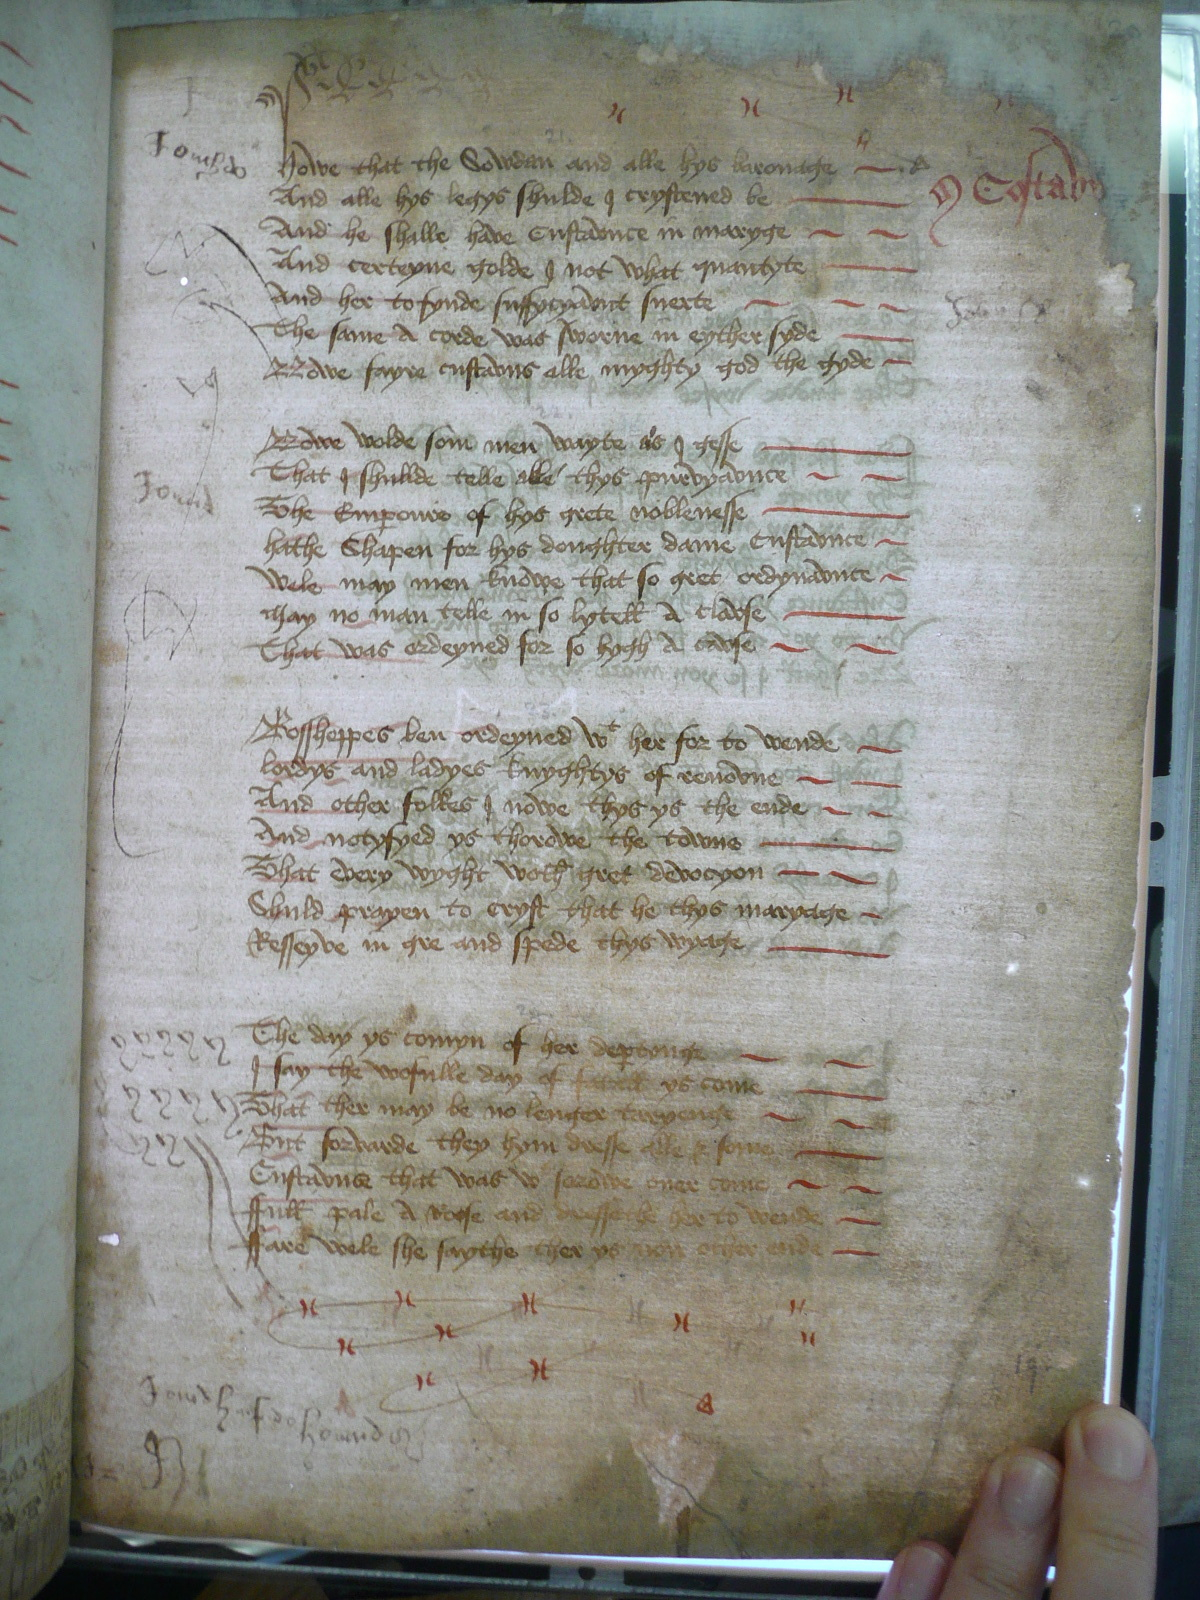 howe that the Sowdan and alle hys baronage
And alle hys legys shulde I crystened be
And he shalle have Custaunce in maryge
And certeyne golde I not what quantyte
And her to fynde suffycyaunt suerte
The same A corde was sworne in eyther syde
Nowe fayre custauns alle myghty god the gyde
Nowe wolde som men wayte as I gesse
That I shullde telle alle thys purvyaunce
The Emperoure of hys grete noblenesse
hathe Shapen for hys doughter dame Custaunce
Wele may men knowe that so gret ordynaunce
May no man telle in so lytell A clause
That was ordeyned for so hygh A cause
Bosshoppes ben ordeyned wt her for to wende
lordys and ladyes knyghtys of renoune
And other folkes I nowe thys ys the ende
And notyfyed ys thorowe the towne
That every wyght woth gret devocyon
Shuld prayen to cryst that he thys maryage
Resseyve in gre and spede thys vyage
The day ys comyn of her departynge
I say the wofulle day of ys come
That ther may be no lenger taryenge
But forwarde they hym dresse alle & some
Custaunse that was w sorowe over come
ffull pale A rose and dressethe her to wende
ffare wele she saythe ther ys non other ende